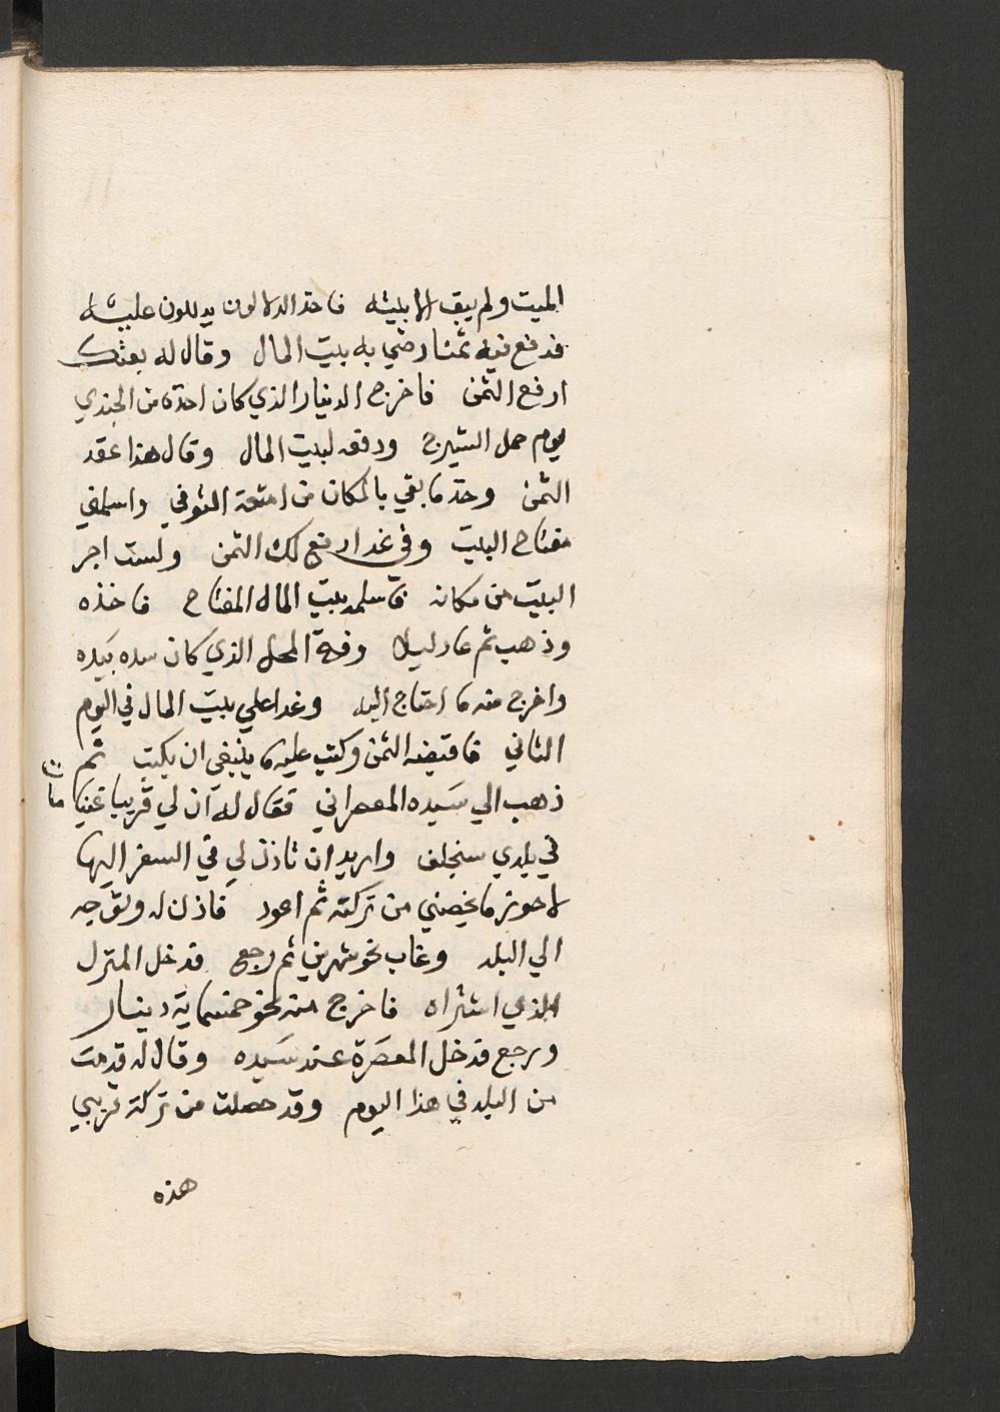 الميت ولم يبق الا بيته فاخذ الدلالون يدللون عليه
فدفع فيه ثمنا رضي به بيت المال وقال له بعتك
ادفع الثمن فاخرج الدينار الذي كان اخذه من الجندي
يوم حمل الشيرج ودفعه لبيت المال وقال هذا عقد
الثمن وخذ ما بقي بالمكان من امتعة المتوفي واسلمني
مفتاح البيت وفي غد ادفع لك الثمن ولست اجر
البيت من مكانه فاسلمه بيت المال المفتاح فاخذه
وذهب ثم عاد ليلا وفتح المحل الذي كان سده بيده
واخرج منه ما احتاج اليه وغدا علي بيت المال في اليوم
الثاني فاقبضه الثمن وكتب عليه ما ينبغي ان يكتب ثم
ذهب الي سيده المعصراني فقال له ان لي قريبا غنيا مات
في بلدي سنجلف واريد ان تاذن لي في السفر اليها
لاحوز ما يخصني من تركته ثم اعود فاذن له وتوجه
الي البلد وغاب نحو شهرين ثم رجع فدخل المنزل
الذي اشتراه فاخرج منه نحو خمسماية دينار
ورجع فدخل المعصرة عند سيده وقال له قدمت
من البلد في هذا اليوم وقد حصلت من تركة قريبي
هذه